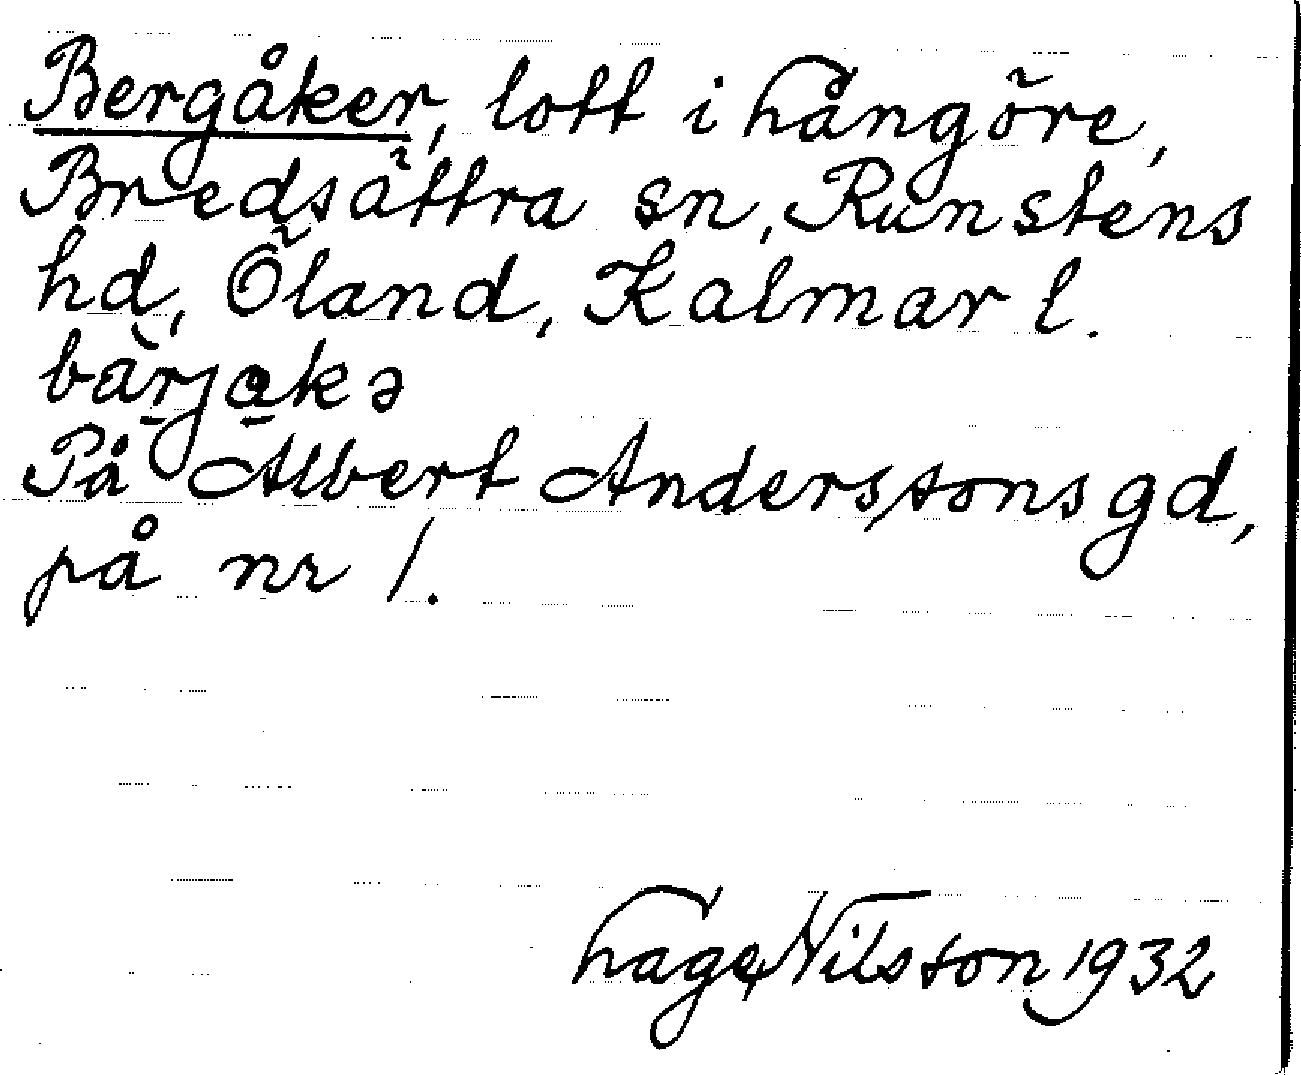 Bergåker, lott i Hångöre,
Bredsättra sn, Runstens
hd, Öland, Kalmar l.
bärjakə
På Albert Anderssons gd,
på nr 1.
Hage Nilsson 1932